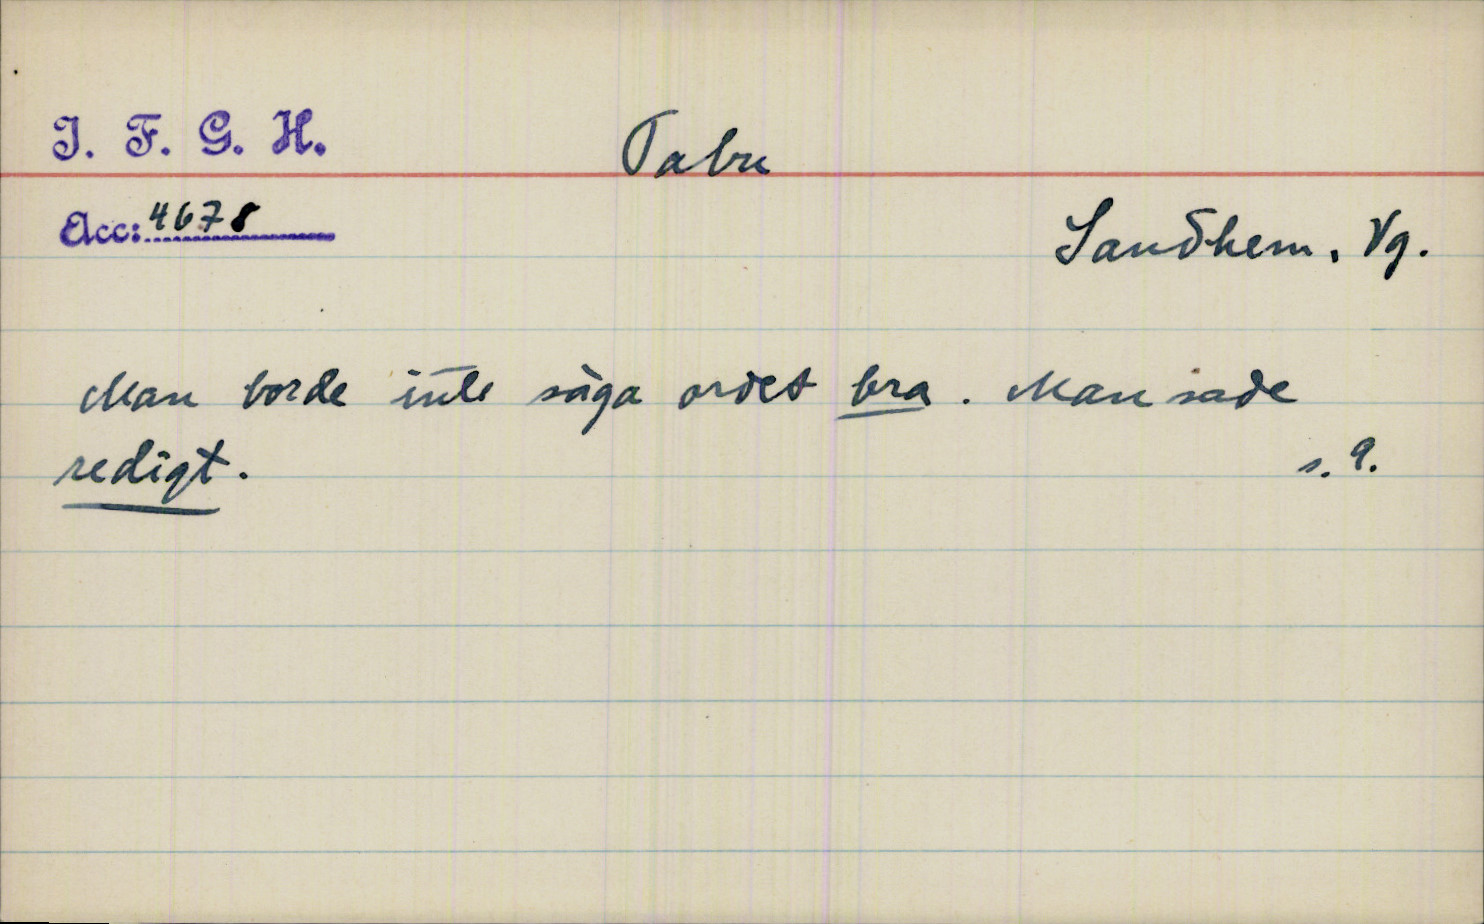 I. F. G. H.
Tabu
Acc: 4678
Sandhem, Vg.
Man borde inte säga ordet bra. Man sade
redigt.
s. 9.